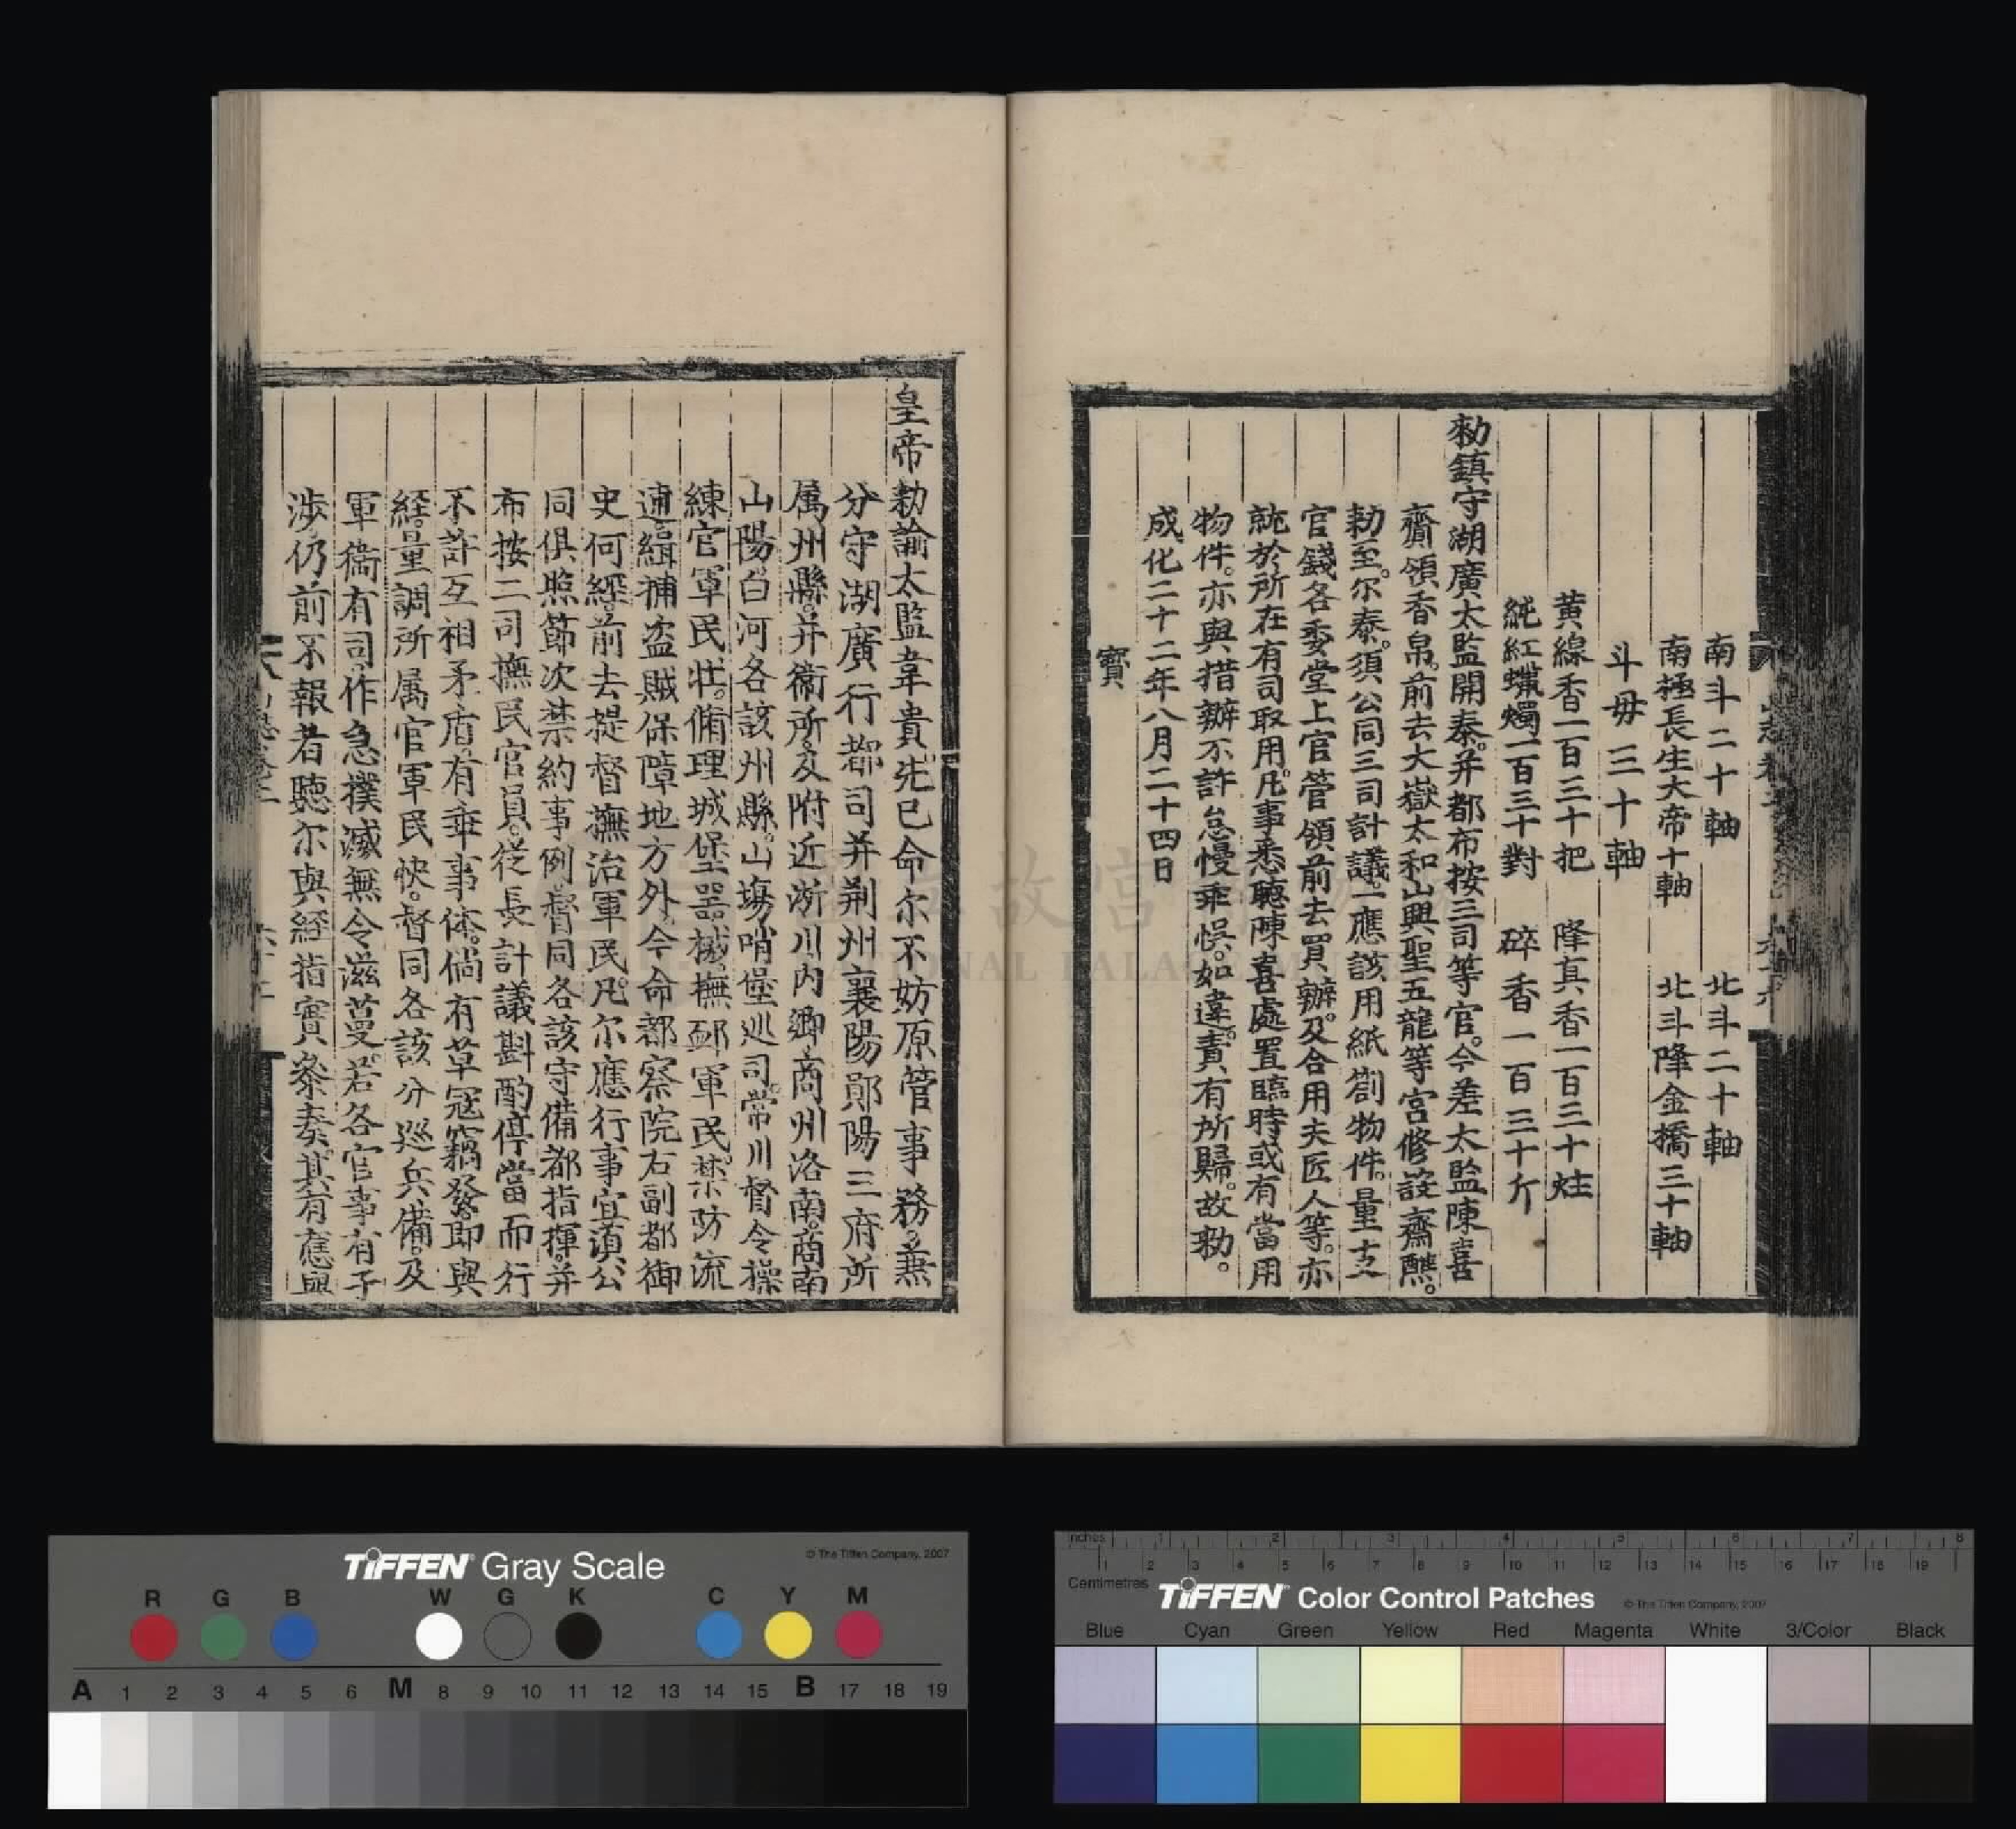 南斗二十軸　北斗二十軸
南極長生大帝十軸　北斗降金橋三十軸
斗毋三十軸
黄線香一百三十把　降真香一百三十炷
純紅蠟燭一百三十對　碎香一百三十斤
勑鎮守湖廣太監開泰。并都布按三司等官。今差太監陳喜
齎領香帛。前去大嶽太和山興聖五龍等宮修設齋醮。
勑至。尔泰。須公同三司計議。一應該用紙劄物件。量支
官錢各委堂上官管領前去買辦。及合用夫匠人等。亦
就於所在有司取用。凡事悉聽陳喜處置臨時或有當用
物件。亦與措辦不許怠慢乖悞。如違。責有所歸。故勑。
成化二十二年八月二十四日
寶
皇帝勑諭太監韋貴。先已命尔不妨原管事務。兼
分守湖廣行都司并荆州襄陽鄖陽三府所
属州縣。并衞所。及附近淅川内鄉商州洛南。商南
山陽白河各該州縣。山塲哨堡巡司。常川督令操
練官軍民壯。脩理城堡器械。撫䘏軍民。禁防流
逋。緝捕盗賊保障地方外。今命都察院右副都御
史何經。前去提督撫治軍民。凡尔應行事宜湏公
同俱照節次禁約事例。督同各該守備都指揮。并
布按二司撫民官員。從長計議斟酌停當而行
不許互相矛盾。有乖事体。倘有草冦竊發。即與
經量調所属官軍民快。督同各該分巡兵備。及
軍衞有司。作急撲滅無令滋蔓。若各官事有干
涉。仍前不報者聽尔與經指實叅奏。其有應與